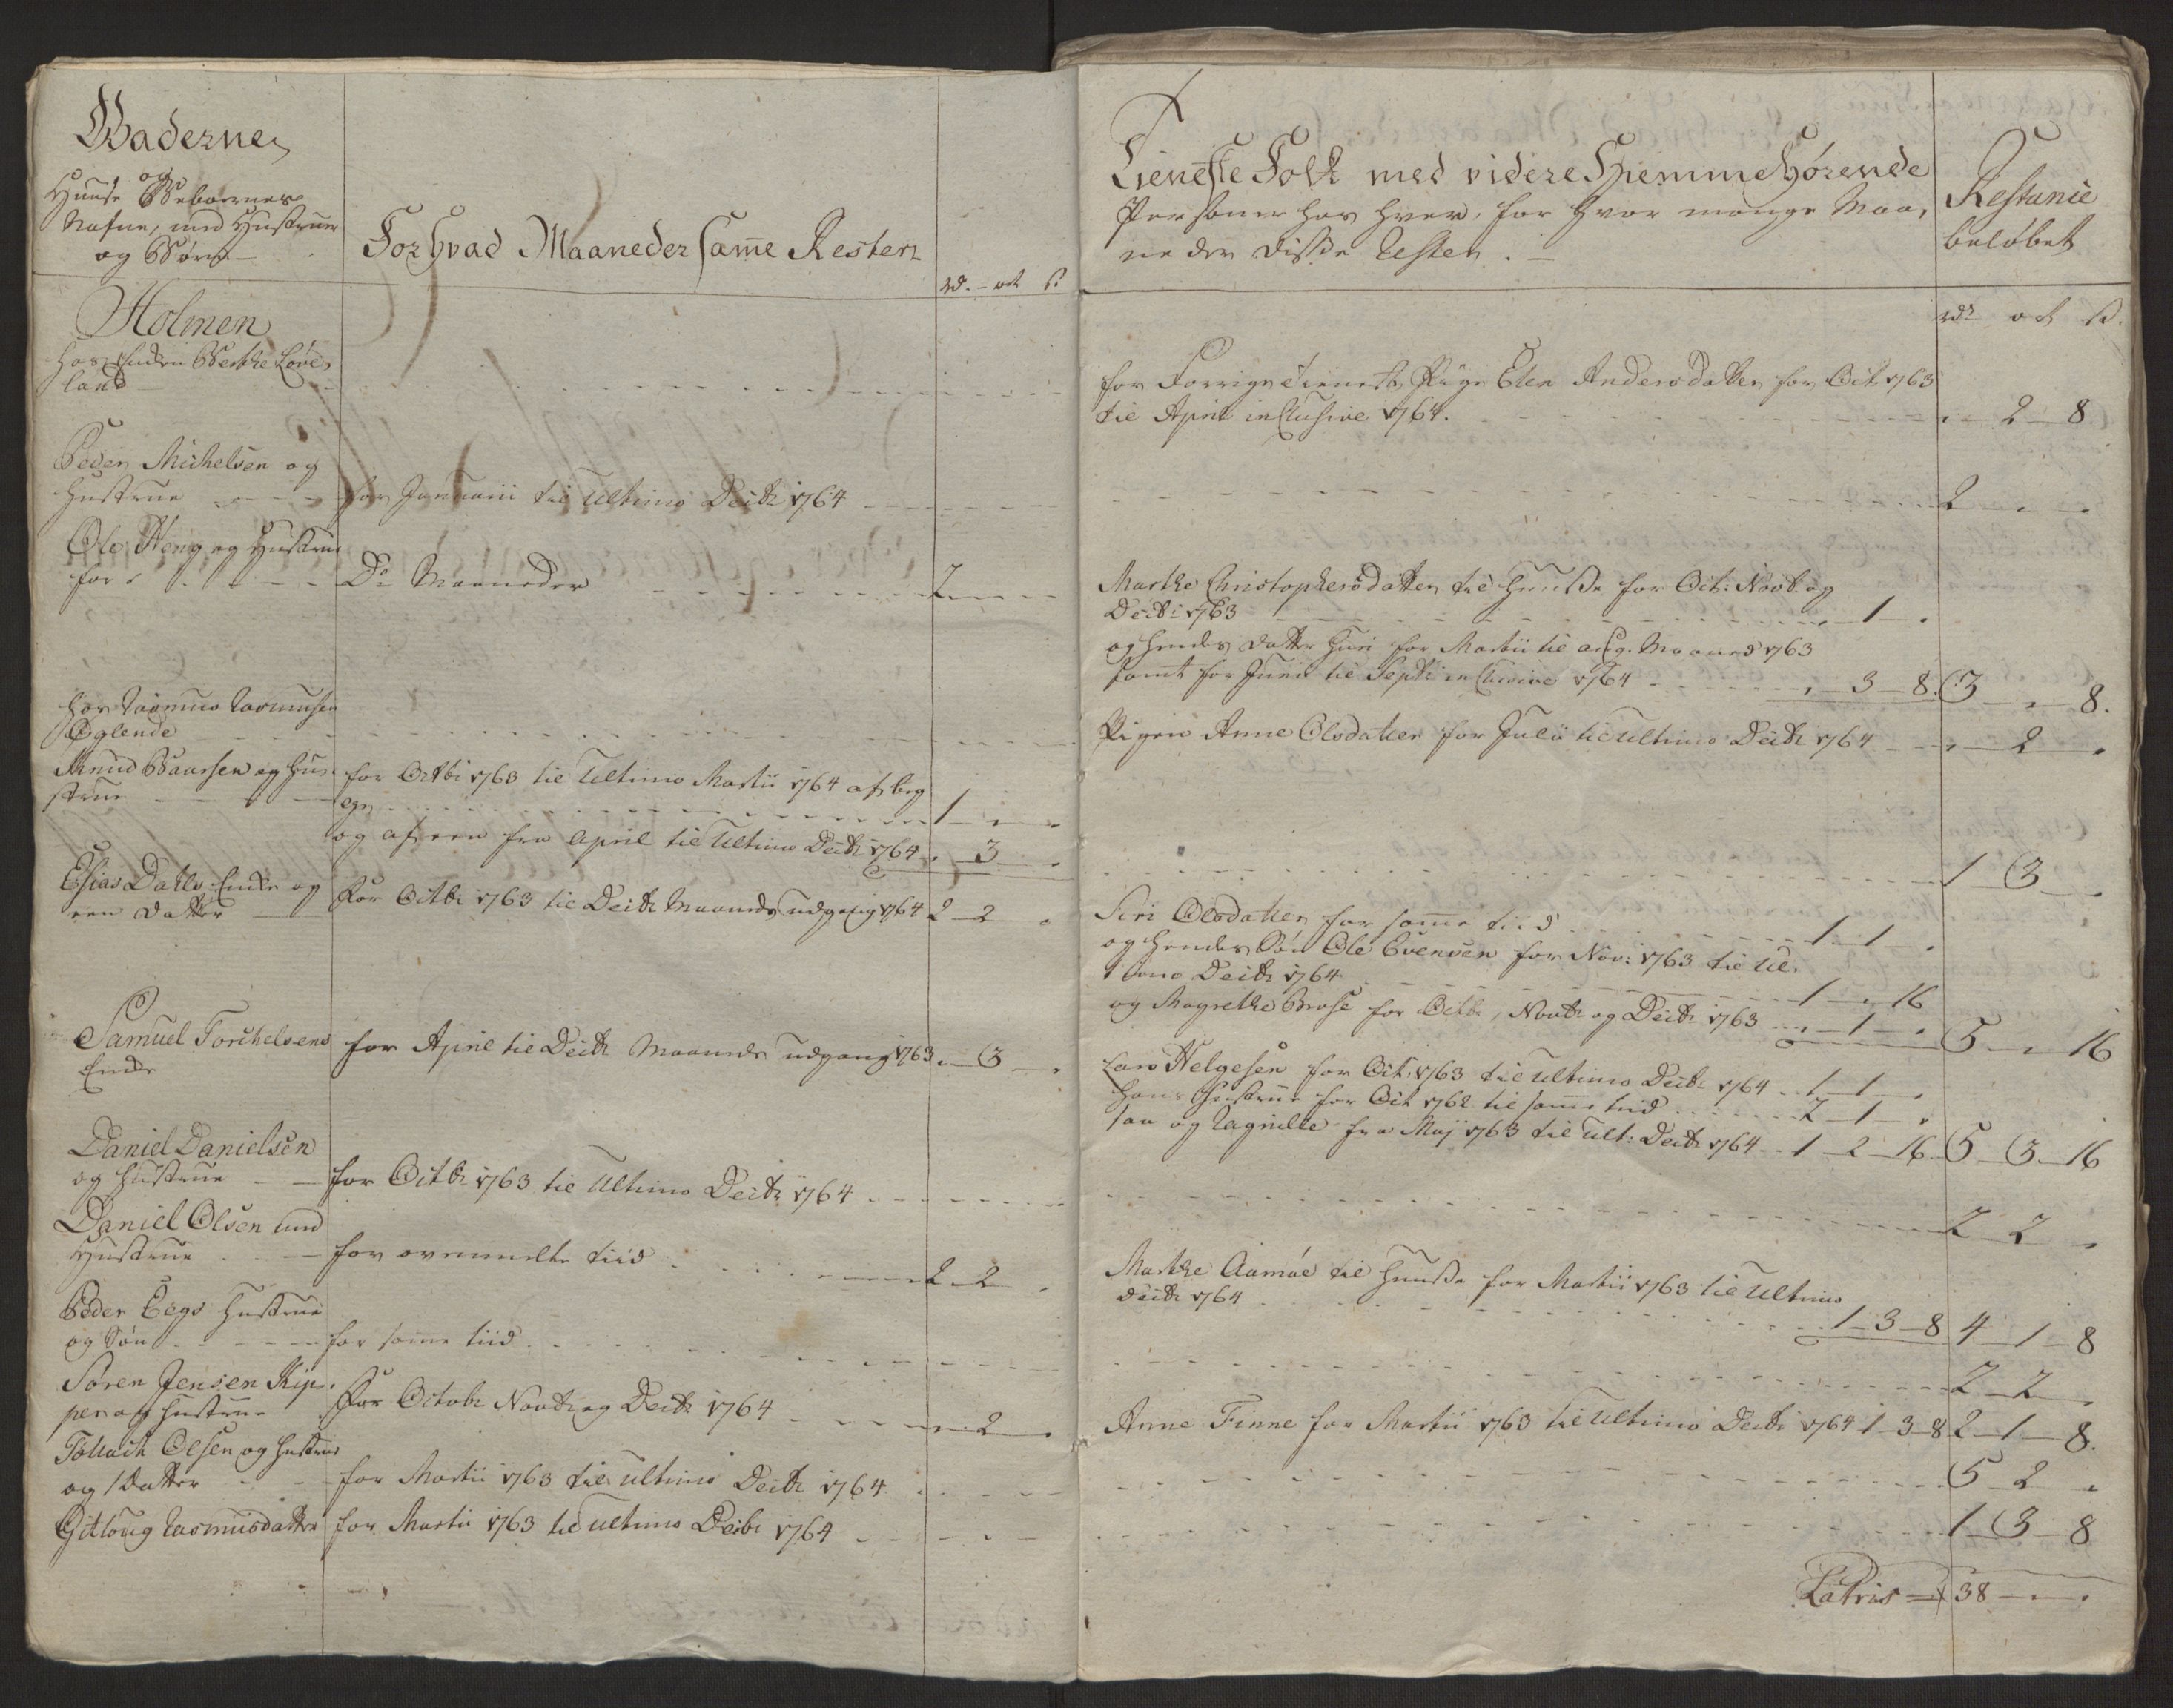 Gaderne
og
Huuse Beboernes
Nafne, med Hustruer
og Børn
For Hvad Maaneder same Rester
rd. ort s
Holmen
hos Enken Berthe Løve
land
Peder Michelsen og
Hustrue
for Januarii til Ultimo Decbr 1764
Ole Høeg og Hustrue
for
Do Maaneder 2
hos Rasmus Rasmusen
Øglende
Knud Baarsen og Hu-
strue
for Octbr 1763 til Ultimo Martii 1764 af beg
ge 1
og af een fra April til Ultimo Decbr 1764 3
Esias Dahls Enke og
een Datter
For Octbr 1763 til Decbr Maaneds udgang 1764 2 2
Samuel Torchelsens
Enke
for April til Decbr Maaneds udgang 1763 3
Daniel Danielsen
og Hustrue
for Octbr 1763 til Ultimo Decbr 1764
Daniel Olsen med
Hustrue
for ovenmelte tiid 2 2
Peder Eegs Hustrue
og Søn
for samme tiid
Søren Jensen Kip-
per og Hustrue
For Octobr Novbr og Decbr 1764 2
Tollach Olsen og Hustrue
og 1 Datter
for Martii 1763 til ultimo Decbr 1764
Gitloug Rasmusdatter
for Martii 1763 til ultimo Decbr 1764
Tieneste Folk med videre Hiemmehørende
Personer hos hver, for hvor mange Maa-
neder disse Rester.
Restance
beløbet
rdr ort s.
for Forrige tieneste Pige Elen Andersdatter for Oct. 1763
til April inclusive 1764. 2 8
2
Marthe Christophersdatter til Huuse for Oct: Novb. og
Decbr 1763 1
og hendes datter Siri for Martii til Maaned 1763
samt for Junii til Septbr inclusive 1764 3 8 3 8.
Pigen Anne Olsdatter for Julii til ultimo Decbr 1764 2
1 3
Siri Olsdatter for samme tiid 1 1
og hendes Søn Ole Evensen for Nov: 1763 til Ul-
timo Decbr 1764 1 16
og Magrethe Brose for Octbr, Novbr og Decbr 1763 1 5 16
Lars Helgesen for Oct. 1763 til ultimo Decbr 1764 1 1
hans Hustrue for Oct 1762 til samme tiid 2 1
saa og Ragnille fra Maj 1763 til ult: Decbr 1764 1 2 16 5 3 16
2 2
Marthe Aamøe til Huuse for Martii 1763 til Ultimo
Decbr 1764 1 3 8 4 1 8
2 2
Anne Finne for Martii 1763 til ultimo Decbr 1764 1 3 8 2 1 8.
5 2
1 3 8
Latris 38